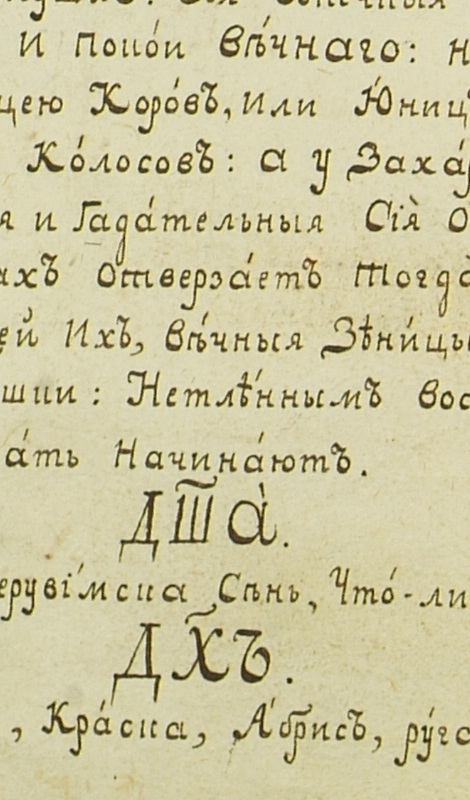 И поко́й Вѣ́чнаго:
Коро́въ, или Ю́ниц
Ко́лосовъ: а у Заха́р
я и Гада́тельныя Сія̀ О
Отверза́етъ тогда̀
Ихъ, вѣ́чныя Зѣни́цы
: Нетлѣ́ннымъ вос
а́ть Начина́ютъ.
Дш҃а̀.
Сѣнь, Что́-ли
Дх҃ъ.
, Кра́ска, А́брисъ,